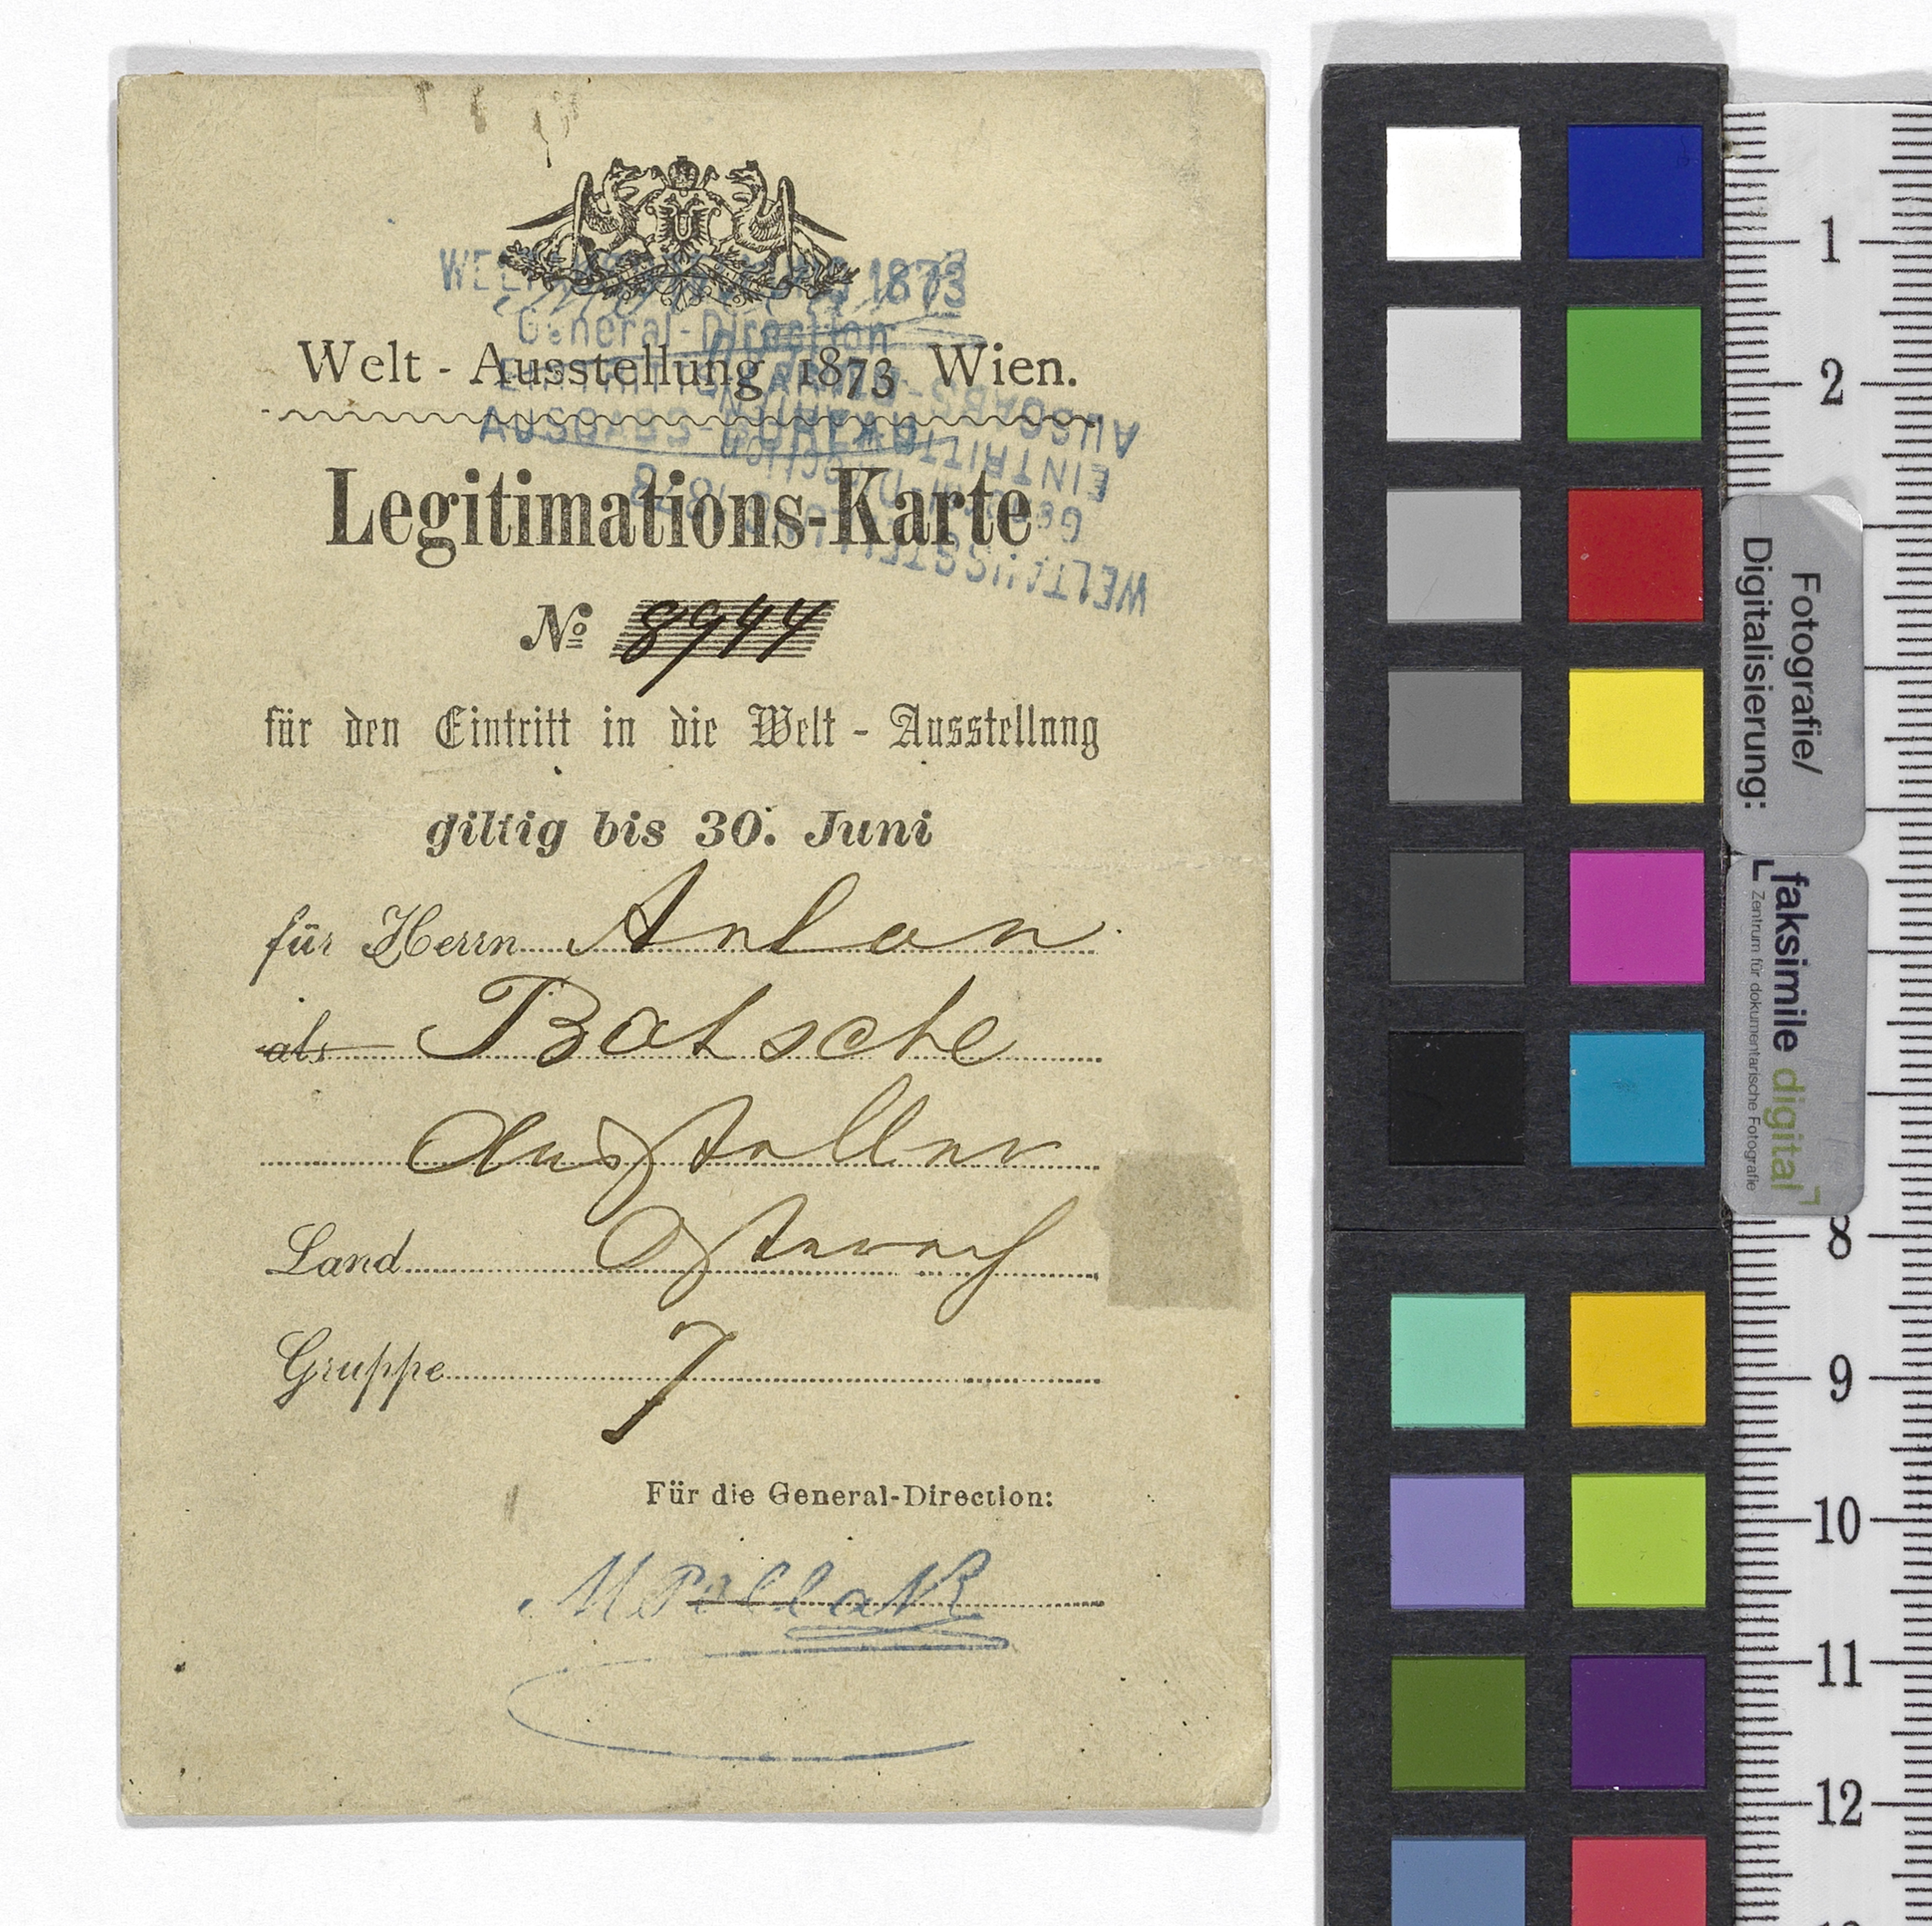 WELTAUSSTELLUNG 1873
General-Direction
Welt - Ausstellung 1873 Wien.
EINTRITTSKARTEN-
AUSGABS-BUREAU
WELTAUSSTELLUNG 1873
General-Direction
EINTRITTSKARTEN
AUSGABS-
Legitimations-Karte
No 8944
für den Eintritt in die Welt - Ausstellung
giltig bis 30. Juni
für Herrn Anton
als Batsche
Aussteller
Land Österreich
Gruppe 7
Für die General-Direction:
M Pollak
1
2
8
9
10
11
12
Fotografie/
Digitalisierung:
faksimile digital
Zentrum für dokumentarische Fotografie